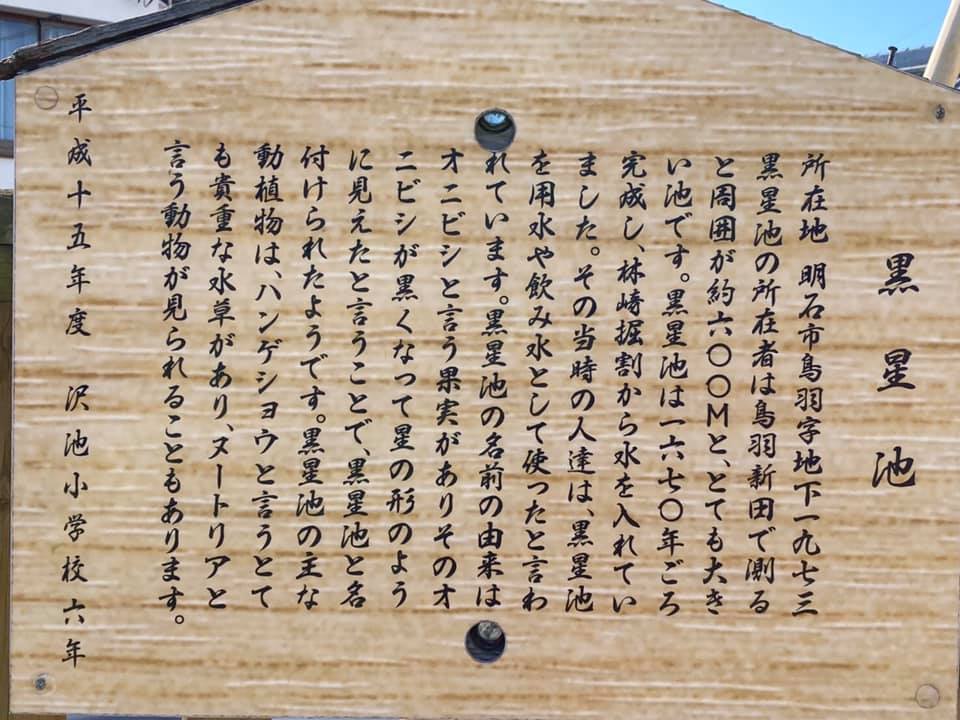 黒星池
所在地 明石市鳥羽字地下一九七三
黒星池の所在者は鳥羽新田で測る
と周囲が約六〇〇Mと、とても大き
い池です。黒星池は一六七〇年ごろ
完成し、林崎掘割から水を入れてい
ました。その当時の人達は、黒星池
を用水や飲み水として使ったと言わ
れています。黒星池の名前の由来は
オニビシと言う果実がありそのオ
ニビシが黒くなって星の形のよう
に見えたと言うことで、黒星池と名
付けられたようです。黒星池の主な
動植物は、ハンゲショウと言うとて
も貴重な水草があり、ヌートリアと
言う動物が見られることもあります。
平成十五年度 沢池小学校六年